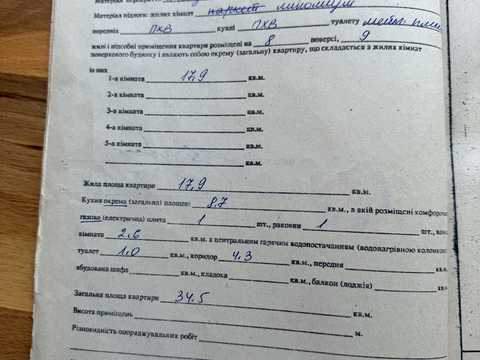 Матеріал підлоги: жилих кімнат паркет лінолеум
передня ПХВ кухні ПХВ туалету
жилі і підсобні приміщення квартири розміщені на 8 поверсі, 9
поверхового будинку і являють собою окрему (загальну) квартиру, що складається з жилих кімнат
із них
1-а кімната 17,9 кв.м.
2-а кімната кв.м.
3-а кімната кв.м.
4-а кімната кв.м.
5-а кімната кв.м.
кв.м.
Жила площа квартири 17,9 кв.м.
Кухня окрема (загальна) площею: 8,7 кв.м., в якій розміщені комфорочна
газова (електрична) плита 1 шт., раковин 1 шт.,
кімната 2.6 кв.м. з центральним гарячим водопостачанням (водонагрівною колонкою
туалет 1,0 кв.м., коридор 4,3 кв.м., передня
вбудована шафа кв.м., кладова кв.м., балкон (лоджія) кв.м.
Загальна площа квартири 34.5 кв.м.
Висота приміщень м.
Різновиність опоряджувальних робіт